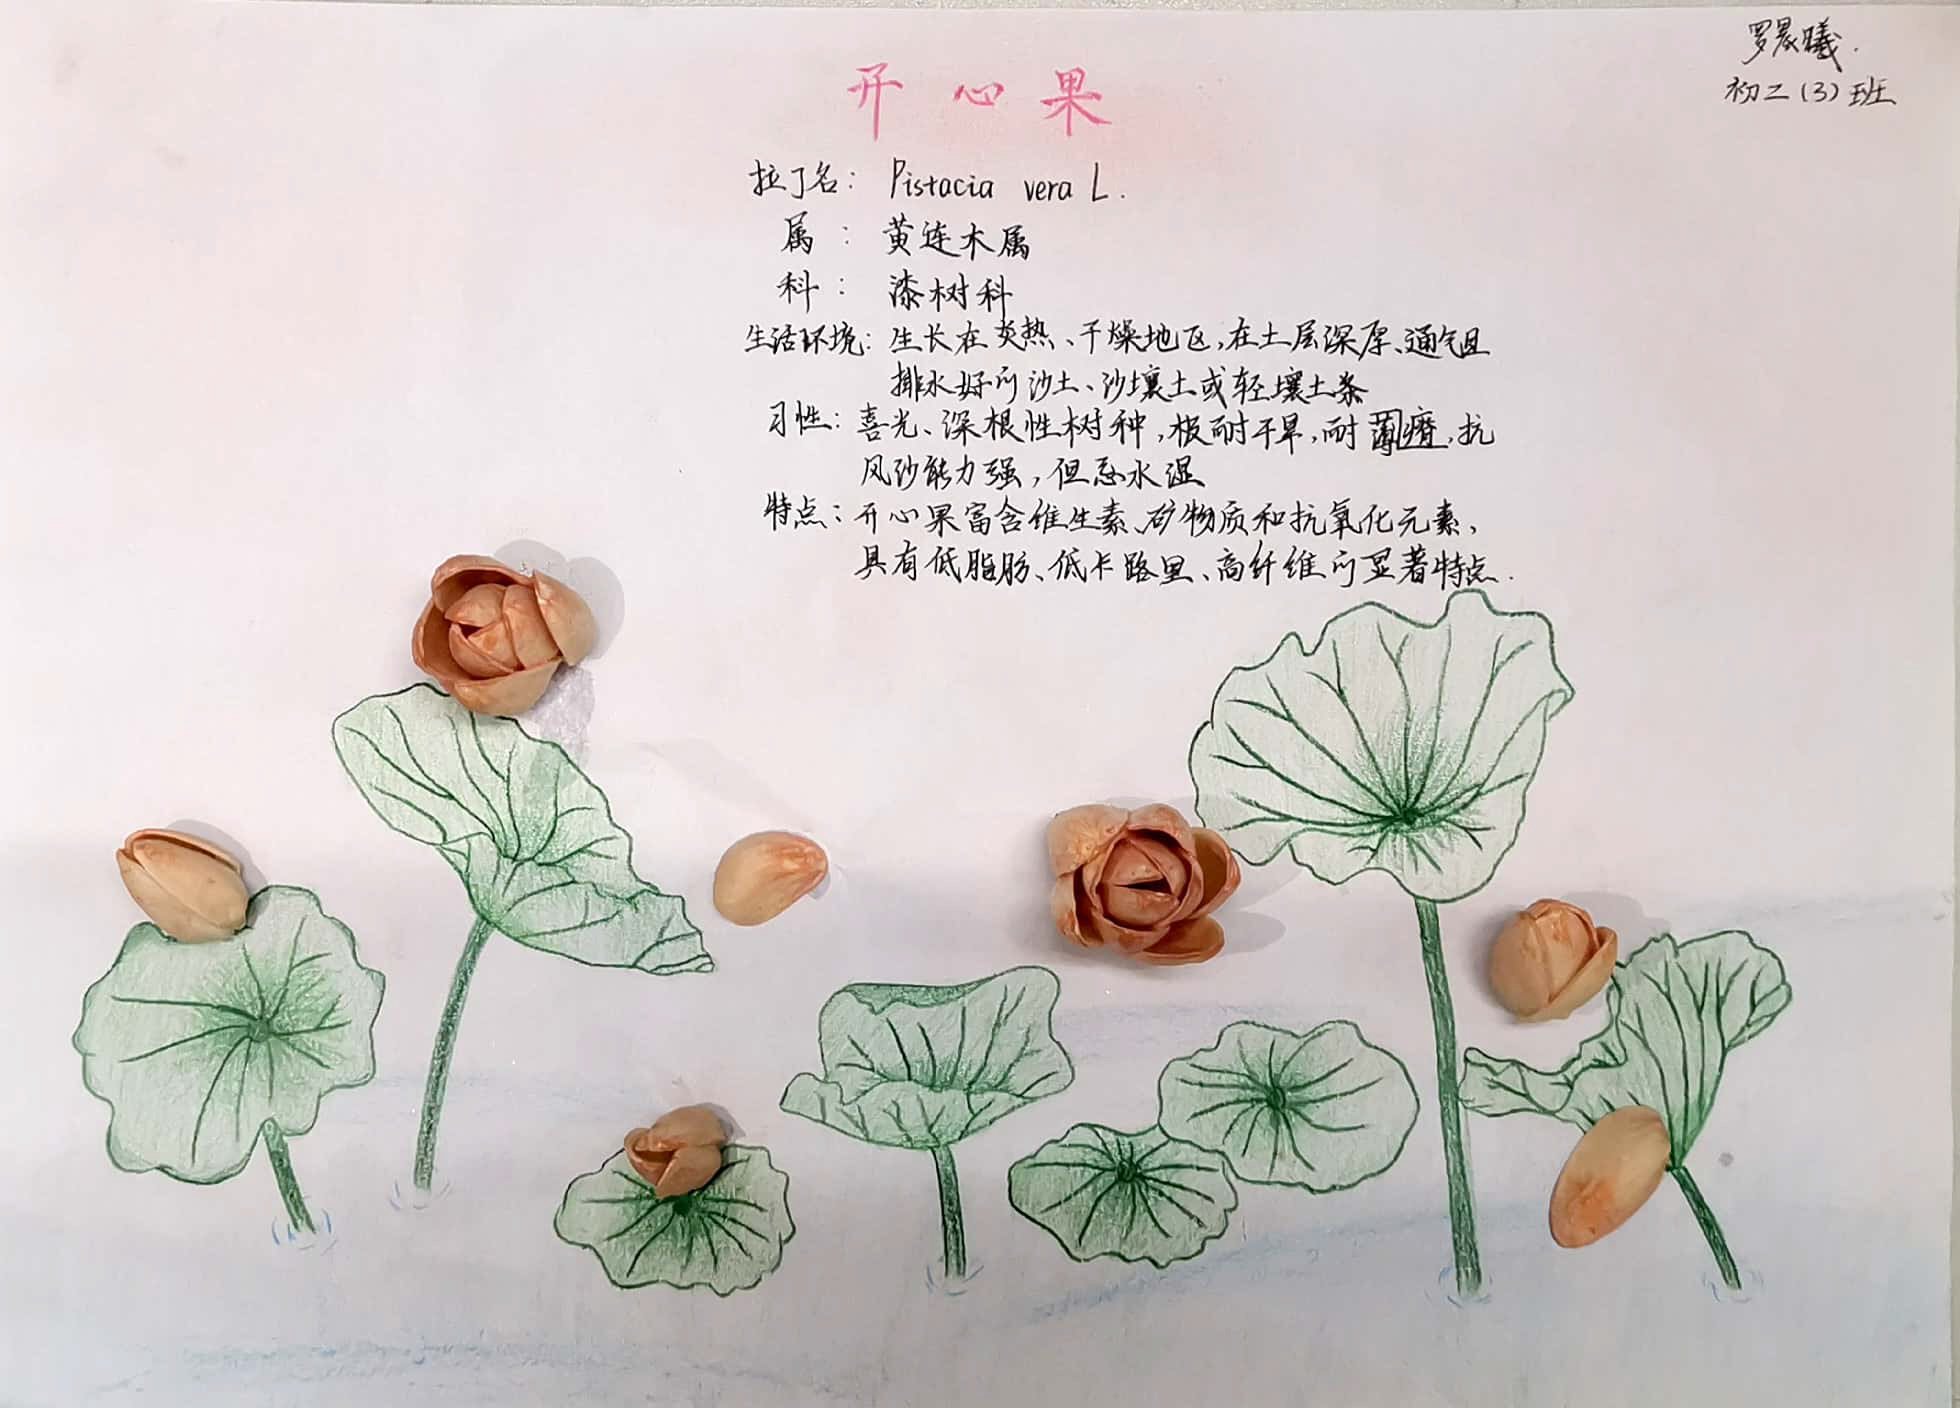 罗晨曦.
初二(3)班
开心果
拉丁名: Pistacia vera L.
属: 黄连木属
科: 漆树科
生活环境: 生长在炎热、干燥地区,在土层深厚、通气且
排水好的沙土、沙壤土或轻壤土条
习性: 喜光、深根性树种,极耐干旱,耐薄瘠,抗
风沙能力强,但忌水湿
特点: 开心果富含维生素、矿物质和抗氧化元素,
具有低脂肪、低卡路里、高纤维的显著特点.